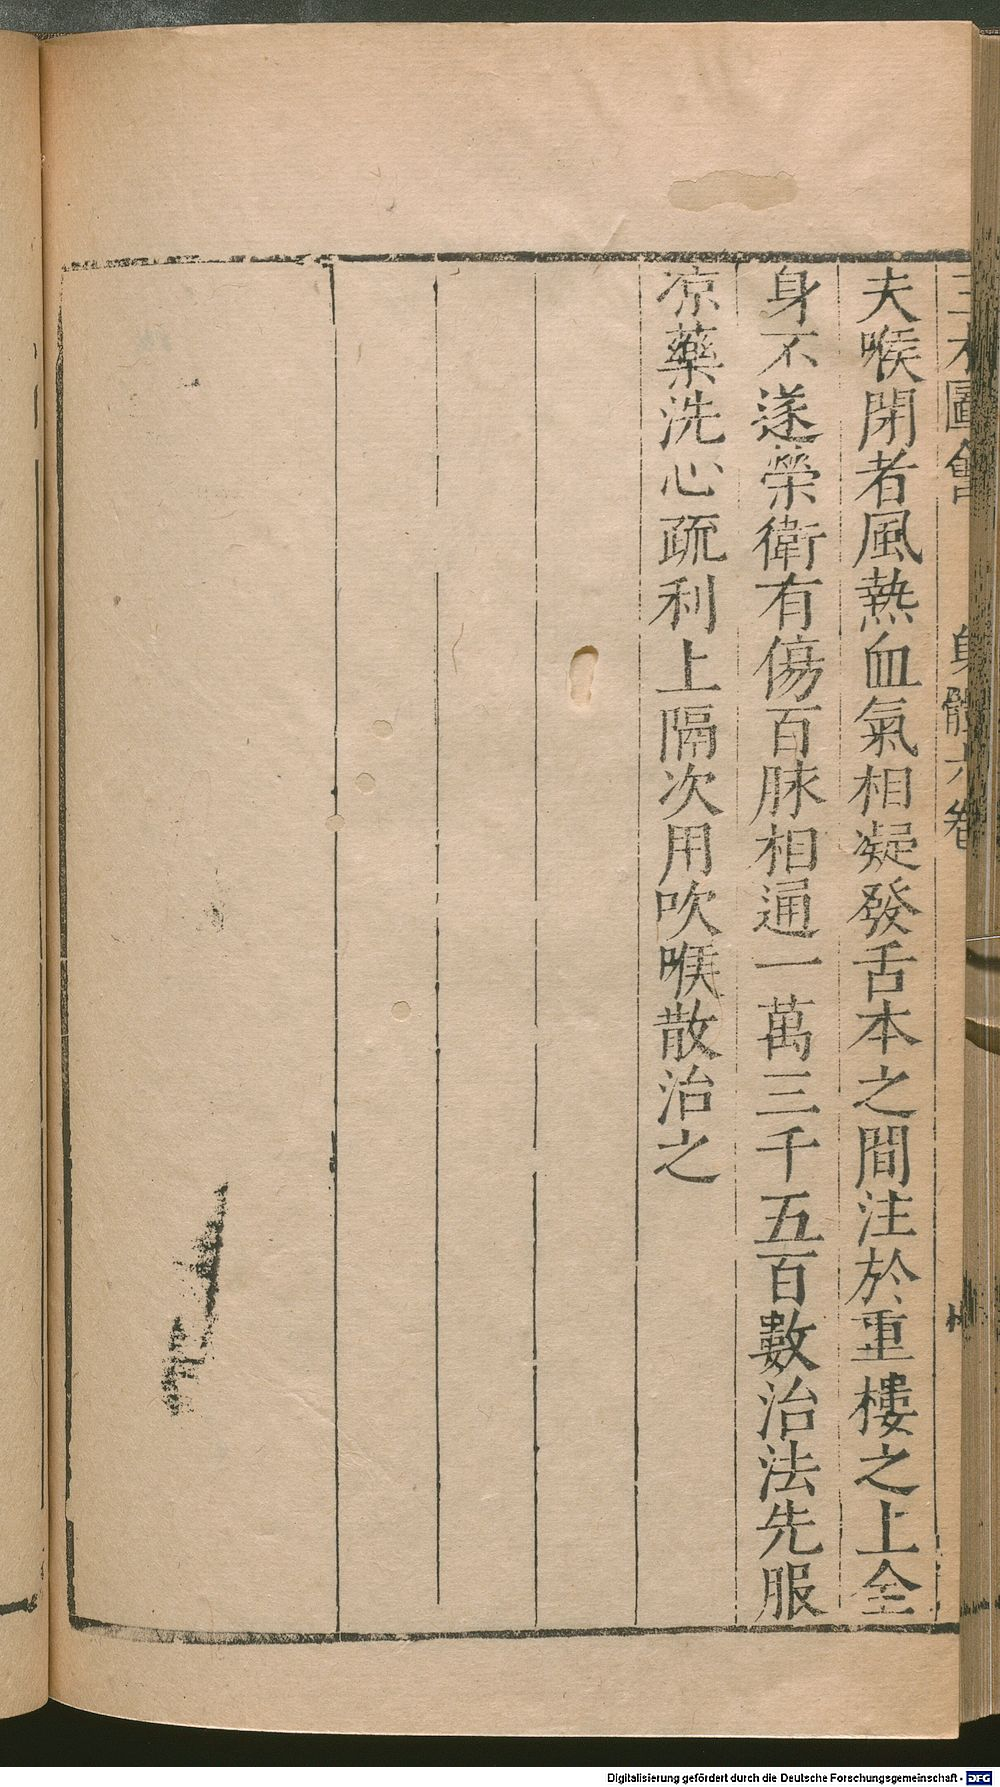 三才圖會 身體六卷
夫喉閉者風熱血氣相凝發舌本之間注於重樓之上全
身不遂榮衛有傷百脉相通一萬三千五百數治法先服
凉藥洗心疏利上隔次用吹喉散治之
Digitalisierung gefördert durch die Deutsche Forschungsgemeinschaft - DFG